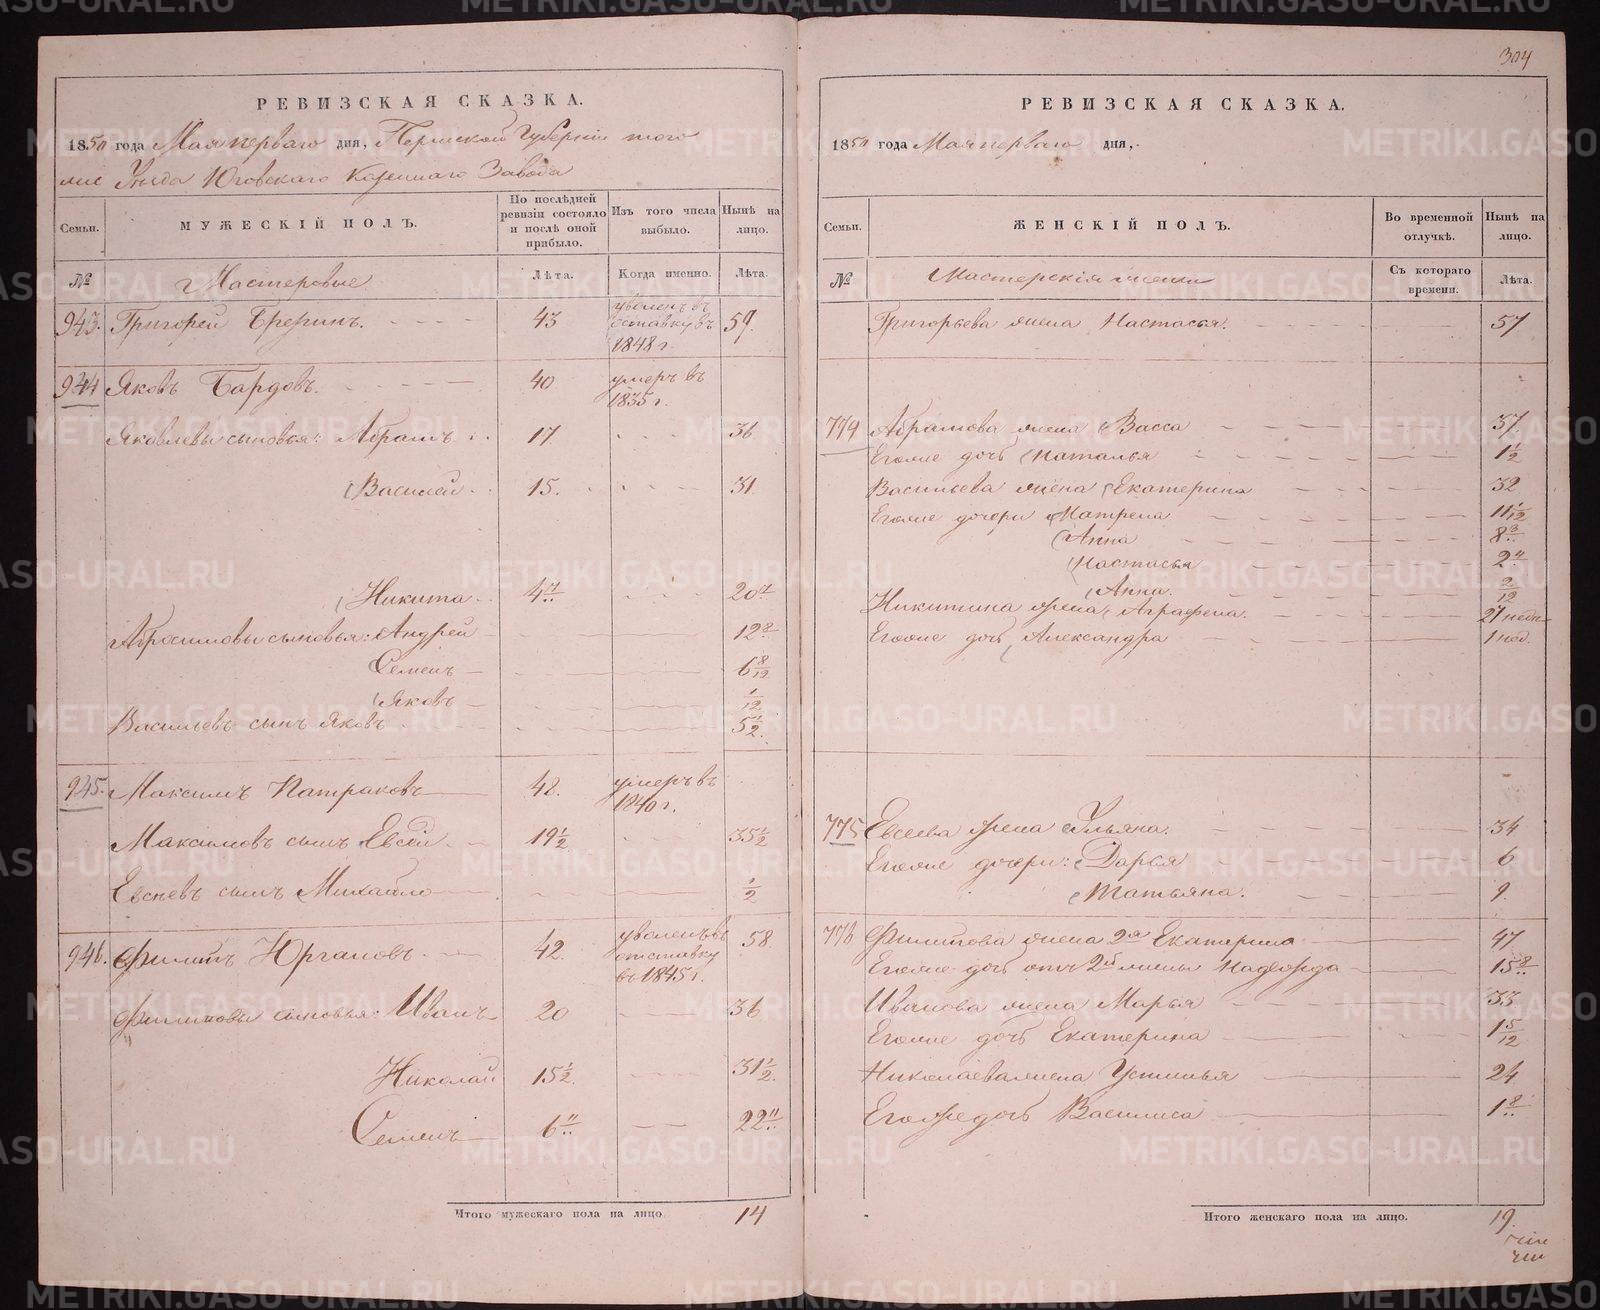 304
РЕВИЗСКАЯ СКАЗКА.
1850 года Мая перваго дня, Пермской Губернiи тогo
же Уезда Юговскаго Казеннаго Завода
Семьи.
МУЖЕСКIЙ ПОЛЪ.
По послѣдней ревизiи состояло и послѣ оной прибыло.
Изъ того числа выбыло.
Нынѣ на лицо.
№
Мастеровые
Лѣта.
Когда именно.
Лѣта.
943. Григорей Брегинъ. 43 уволенъ въ отставку въ 1848 г. 59.
944 Яковъ Бардовъ. 40 умеръ въ 1835 г.
Яковлевы сыновья: Абрамъ 17 36
Василей 15. 31.
Никита 4 20
Абросимовы сыновья: Андрей 12
Семенъ 6 8/12
Яковъ 1/12
Васильевъ сынъ Яковъ 5 1/2
945. Максимъ Патраковъ 48. умеръ въ 1840 г.
Максимовъ сынъ Евсѣй 19 1/2 35 1/2
Евсѣевъ сынъ Михайло 1/2
946. Филипъ Юргановъ 42. уволенъ въ отставку въ 1845 г. 58.
Филиповы сыновья: Иванъ 20 36
Николай 15 1/2 31 1/2
Семенъ 6 11 22 11
Итого мужескаго пола на лицо 14
РЕВИЗСКАЯ СКАЗКА.
1850 года Мая перваго дня,
Семьи.
ЖЕНСКIЙ ПОЛЪ.
Во временной отлучкѣ.
Нынѣ на лицо.
№
Мастерскiя жены
Съ котораго времени.
Лѣта.
Григорьева жена Настасья. 57
774 Абрамова жена Васса 37.
Егоже дочь Наталья 1 1/2
Васильева жена Екатерина 32
Егоже дочери Матрена 11 1/12
Анна 8 3
Настасья 2 11
Анна. 2/12
Никитина жена Аграфена. 21
Егоже дочь Александра 1 нед.
775 Евсеева жена Ульяна. 34
Егоже дочери: Дарья 6
Татьяна. 9.
776 Филипова жена 2я Екатерина 47
Егоже дочь отъ 2й жены Надежда 15 8
Иванова жена Марья 33
Егоже дочь Екатерина 1 5/12
Николаева жена Устинья 24
Егоже дочь Василиса 1 8
Итого женскаго пола на лицо. 19.
METRIKI.GASO-URAL.RU